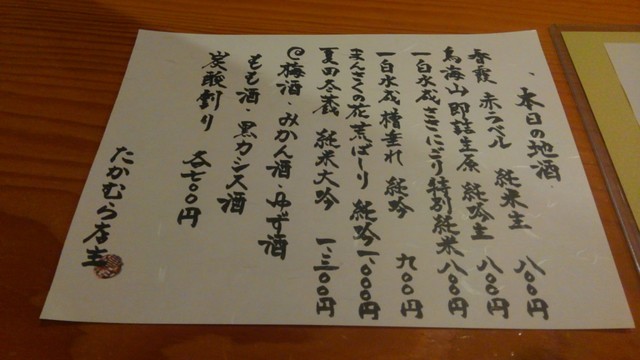 本日の地酒
春霞 赤ラベル 純米生 八〇〇円
鳥海山 即詰生原 純吟生 八〇〇円
一白水成 ささにごり特別純米 八〇〇円
一白水成 槽垂れ 純吟 九〇〇円
まんさくの花 荒ばしり 純吟 一、〇〇〇円
夏田冬蔵 純米大吟 一、三〇〇円
@梅酒・みかん酒・ゆず酒
もも酒・黒カシス酒
炭酸割り 各七〇〇円
たかむら店主